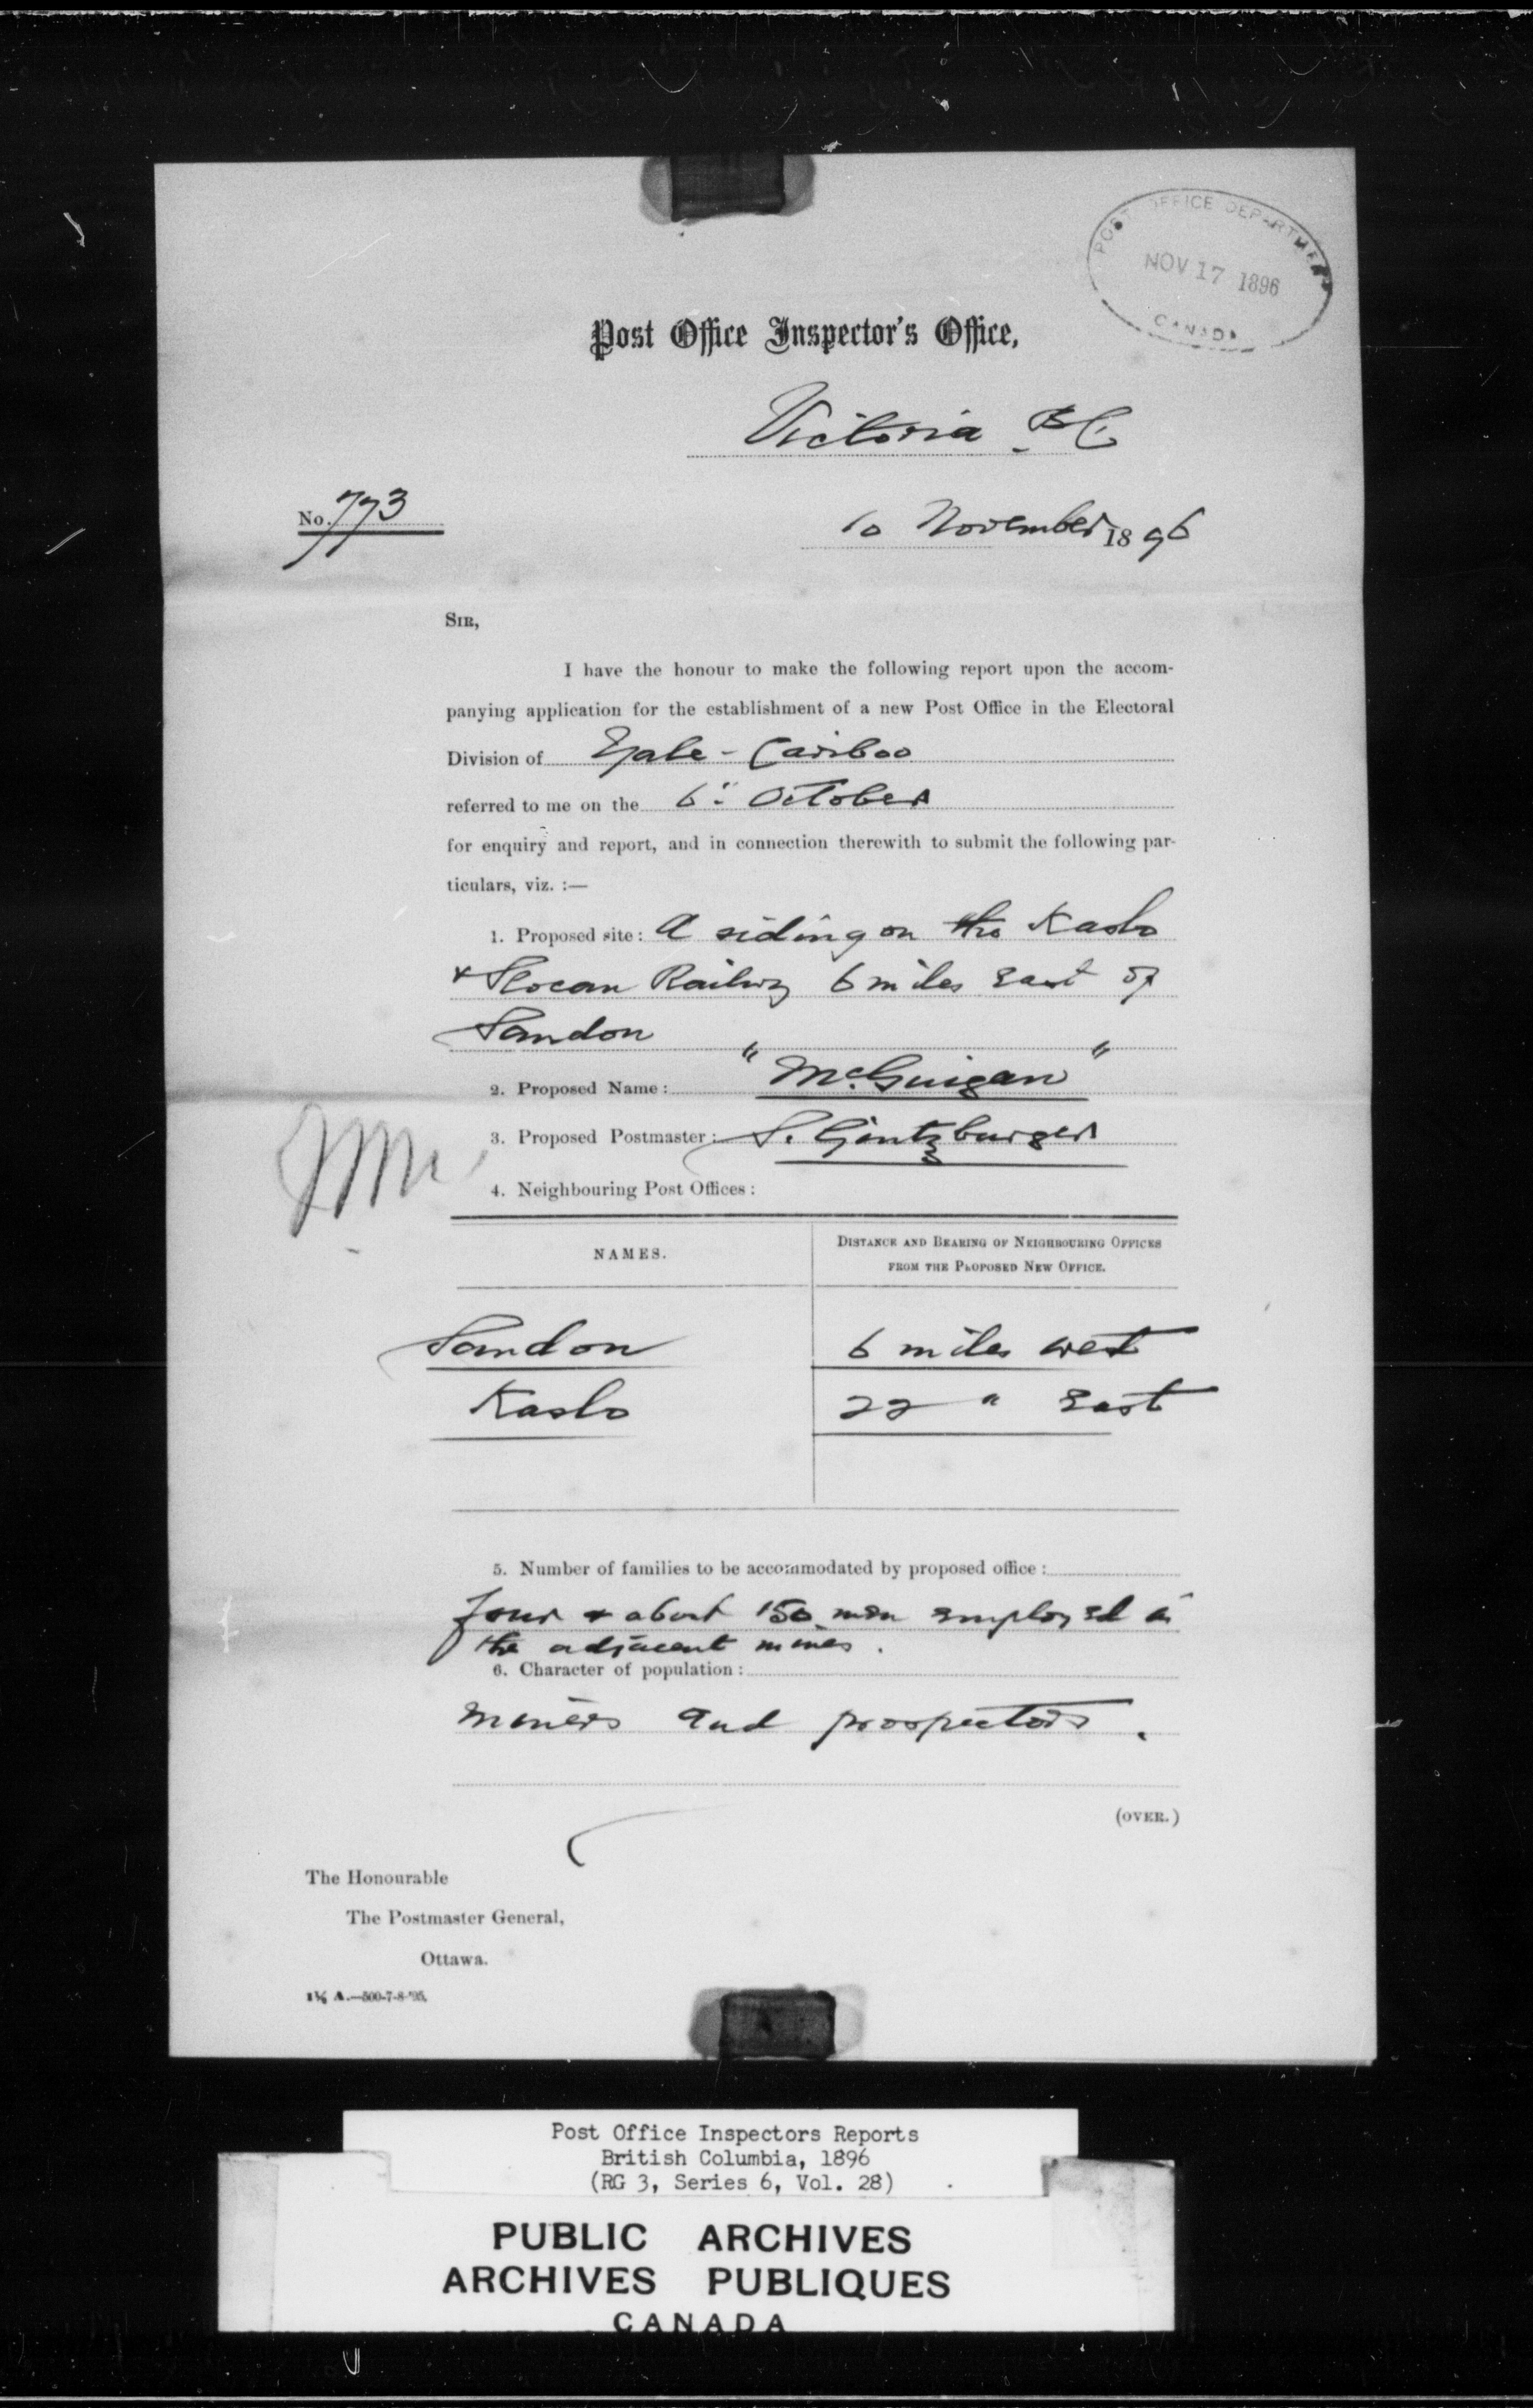 POST OFFICE DEPARTMENT
NOV 17 1896
CANADA
Post Office Inspector's Office,
Victoria BC
No. 773
10 November 1896
SIR,
I have the honour to make the following report upon the accom-
panying application for the establishment of a new Post Office in the Electoral
Division of Yale-Cariboo
referred to me on the 6" October
for enquiry and report, and in connection therewith to submit the following par-
ticulars, viz. :—
1. Proposed site: A siding on the Kaslo
& Slocan Railwy 6 miles East of
Sandon
2. Proposed Name: "McGuigan"
3. Proposed Postmaster: S. Gintzburger
4. Neighbouring Post Offices:
NAMES.
DISTANCE AND BEARING OF NEIGHBOURING OFFICES
FROM THE PROPOSED NEW OFFICE.
Sandon 6 miles west
Kaslo 22 " East
5. Number of families to be accommodated by proposed office:
four & about 150 men employed in
the adjacent mines.
6. Character of population:
Miners and prospectors.
(OVER.)
The Honourable
The Postmaster General,
Ottawa.
A.—500-7-8-'95.
Post Office Inspectors Reports
British Columbia, 1896
(RG 3, Series 6, Vol. 28)
PUBLIC ARCHIVES
ARCHIVES PUBLIQUES
CANADA